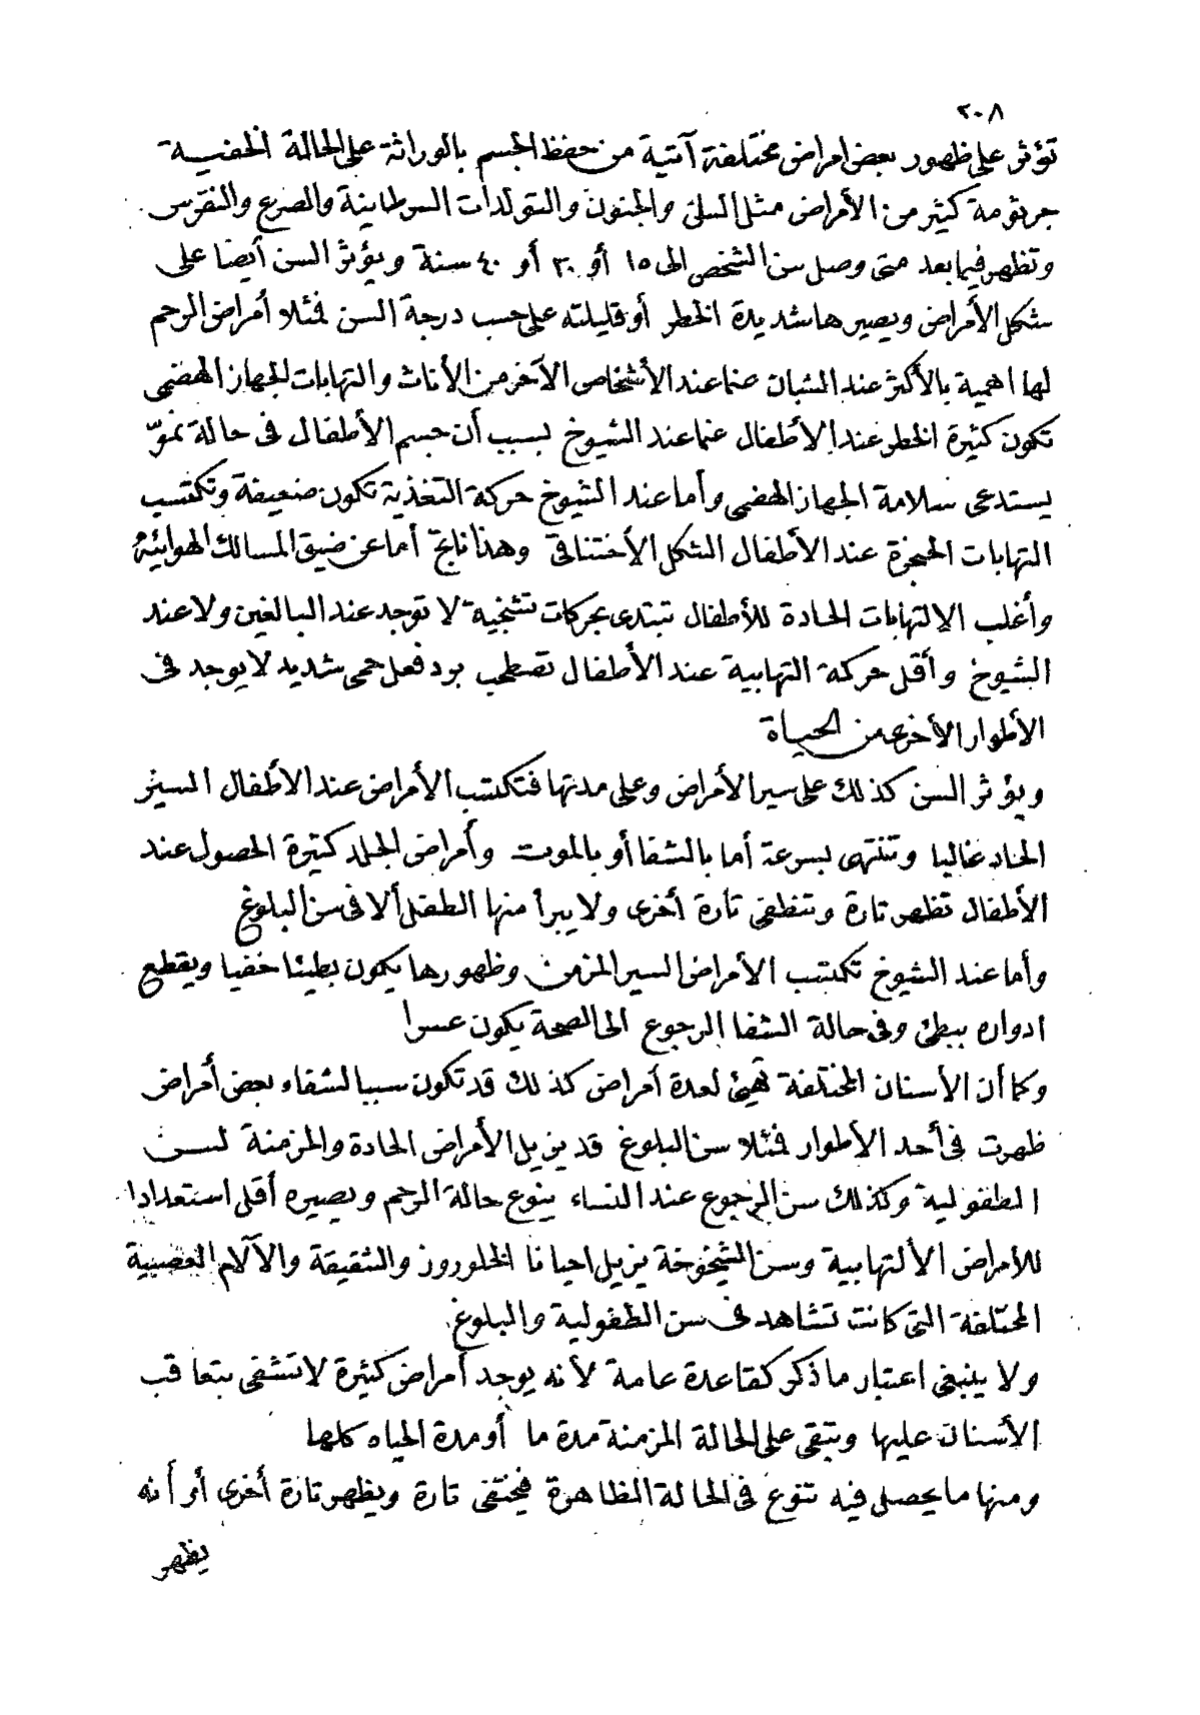 ٢٠٨
تؤثر على ظهور بعض امراض مختلفة آتية من حفظ الجسم بالوراثة على الحالة الخفيــة
جرثومة كثير من الأمراض مثل السل والجنون والتولدات السرطاينة والصرع والنقرس
وتظهر فيما بعد متى وصل سن الشخص الى ١٥ أو ٣٠ أو ٤٠ سنة ويؤثر السن أيضا على
شكل الأمراض ويصيرها شديدة الخطر أو قليلته على حسب درجة السن فمثلا أمراض الرحم
لها اهمية بالأكثر عند الشبان عنما عند الأشخاص الآخر من الأناث والتهابات الجهاز الهضمى
تكون كثيرة الخطر عند الأطفال عنما عند الشيوخ بسبب أن جسم الأطفال فى حالة نموّ
يستدعى سلامة الجهاز الهضمى وأما عند الشيوخ حركة التغذية تكون ضعيفة وتكتسب
التهابات الحنجرة عند الأطفال الشكل الأختناقى وهذا ناتج أما عن ضيق المسالك الهوائية
وأغلب الالتهابات الحادة للأطفال تبتدى بحركات تشنجية لا توجد عند البالغين ولا عند
الشيوخ وأقل حركة التهابية عند الأطفال تصطحب برد فعل حمى شديد لا يوجد فى
الأطوار الأخرى من الحيــاة
ويؤثر السن كذلك على سير الأمراض وعلى مدتها فتكتسب الأمراض عند الأطفال السير
الحاد غالبا وتنتهى بسرعة أما بالشفا أو بالموت وأمراض الجلد كثيرة الحصول عند
الأطفال تظهر تارة وتنطفى تارة أخرى ولا يبرأ منها الطفل ألا فى سن البلوغ
وأما عند الشيوخ تكتسب الأمراض السير المزمن وظهورها يكون بطيئا خفيا ويقطع
ادواره ببطئ وفى حالة الشفا الرجوع الى الصحة يكون عسرا
وكما أن الأسنان المختلفة تهيئ لعدة أمراض كذلك قد تكون سببا لشفاء بعض أمراض
ظهرت فى أحد الأطوار فمثلا سن البلوغ قد يزيل الأمراض الحادة والمزمنة لســن
الطفولية وكذلك سن الرجوع عند النساء ينوع حالة الرحم ويصيره أقل استعدادا
للأمراض الألتهابية وسن الشيخوخة يزيل احيانا الخلوروز والشقيقة والآلام العصبية
المختلفة التى كانت تشاهد فى سن الطفولية والبلوغ
ولا ينبغى اعتبار ما ذكر كقاعدة عامة لأنه يوجد أمراض كثيرة لا تشفى بتعاقب
الأسنان عليها وتبقى على الحالة المزمنة مدة ما أو مدة الحياه كلها
ومنها ما يحصل فيه تنوع فى الحالة الظاهرة فيختفى تارة ويظهر تارة أخرى أو أنه
يظهر